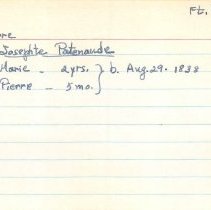 Ft.
re
Josephte Patenaude
Marie - 2 yrs. } b. Aug. 29. 1838
Pierre - 5 mo.